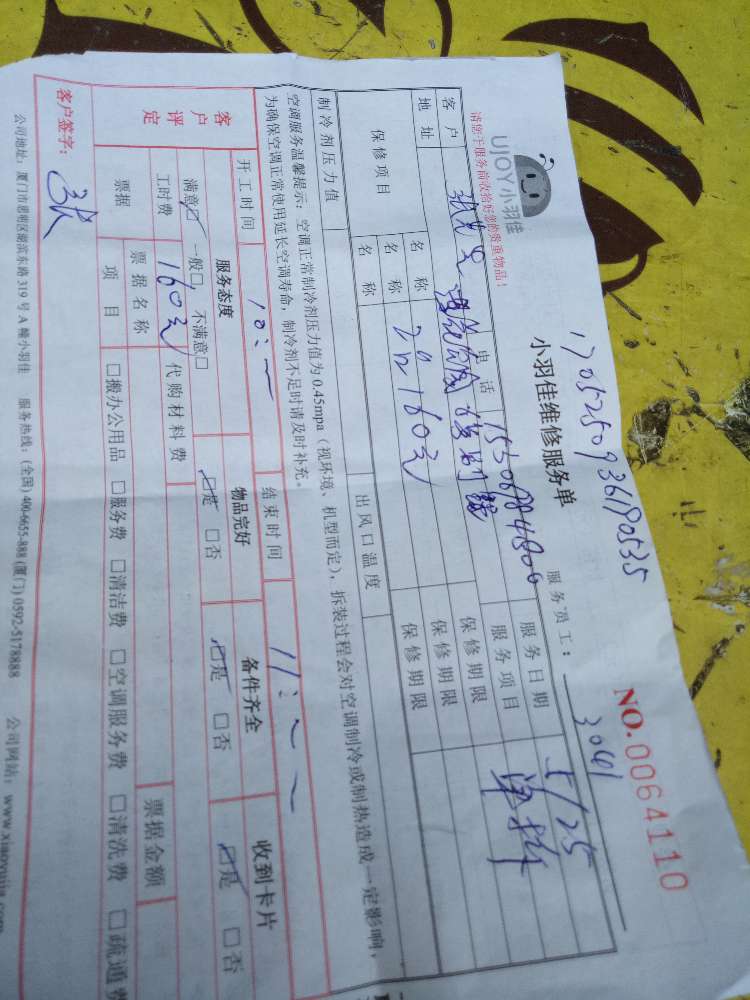 1705250936180535
UJOY小羽佳
小羽佳维修服务单
NO.0064110
请您于服务前收拾好您的贵重物品!
服务员工: 3041
客户
电话 15306984800
服务日期 5/25
地址
服务项目 单拆
保修项目
名称
保修期限
名称 2P 160元
保修期限
名称
保修期限
制冷剂压力值
出风口温度
空调服务温馨提示:空调正常制冷剂压力值为0.45mpa(视环境、机型而定),拆装过程会对空调制冷或制热造成一定影响,
为确保空调正常使用延长空调寿命,制冷剂不足时请及时补充。
客户评定
开工时间 10:
结束时间 11:
服务态度 物品完好 备件齐全 收到卡片
满意☑ 一般□ 不满意□ ☑是 □否 ☑是 □否 ☑是 □否
工时费 160元 代购材料费
票据金额
票据
票据名称
项目 □搬办公用品 □服务费 □清洁费 □空调服务费 □清洗费 □疏通费
客户签字:
公司地址:厦门市思明区湖滨东路319号A幢小羽佳 服务热线:(全国)400-6655-888 (厦门) 0592-5178888 公司网站:www.xiaoyujia.com